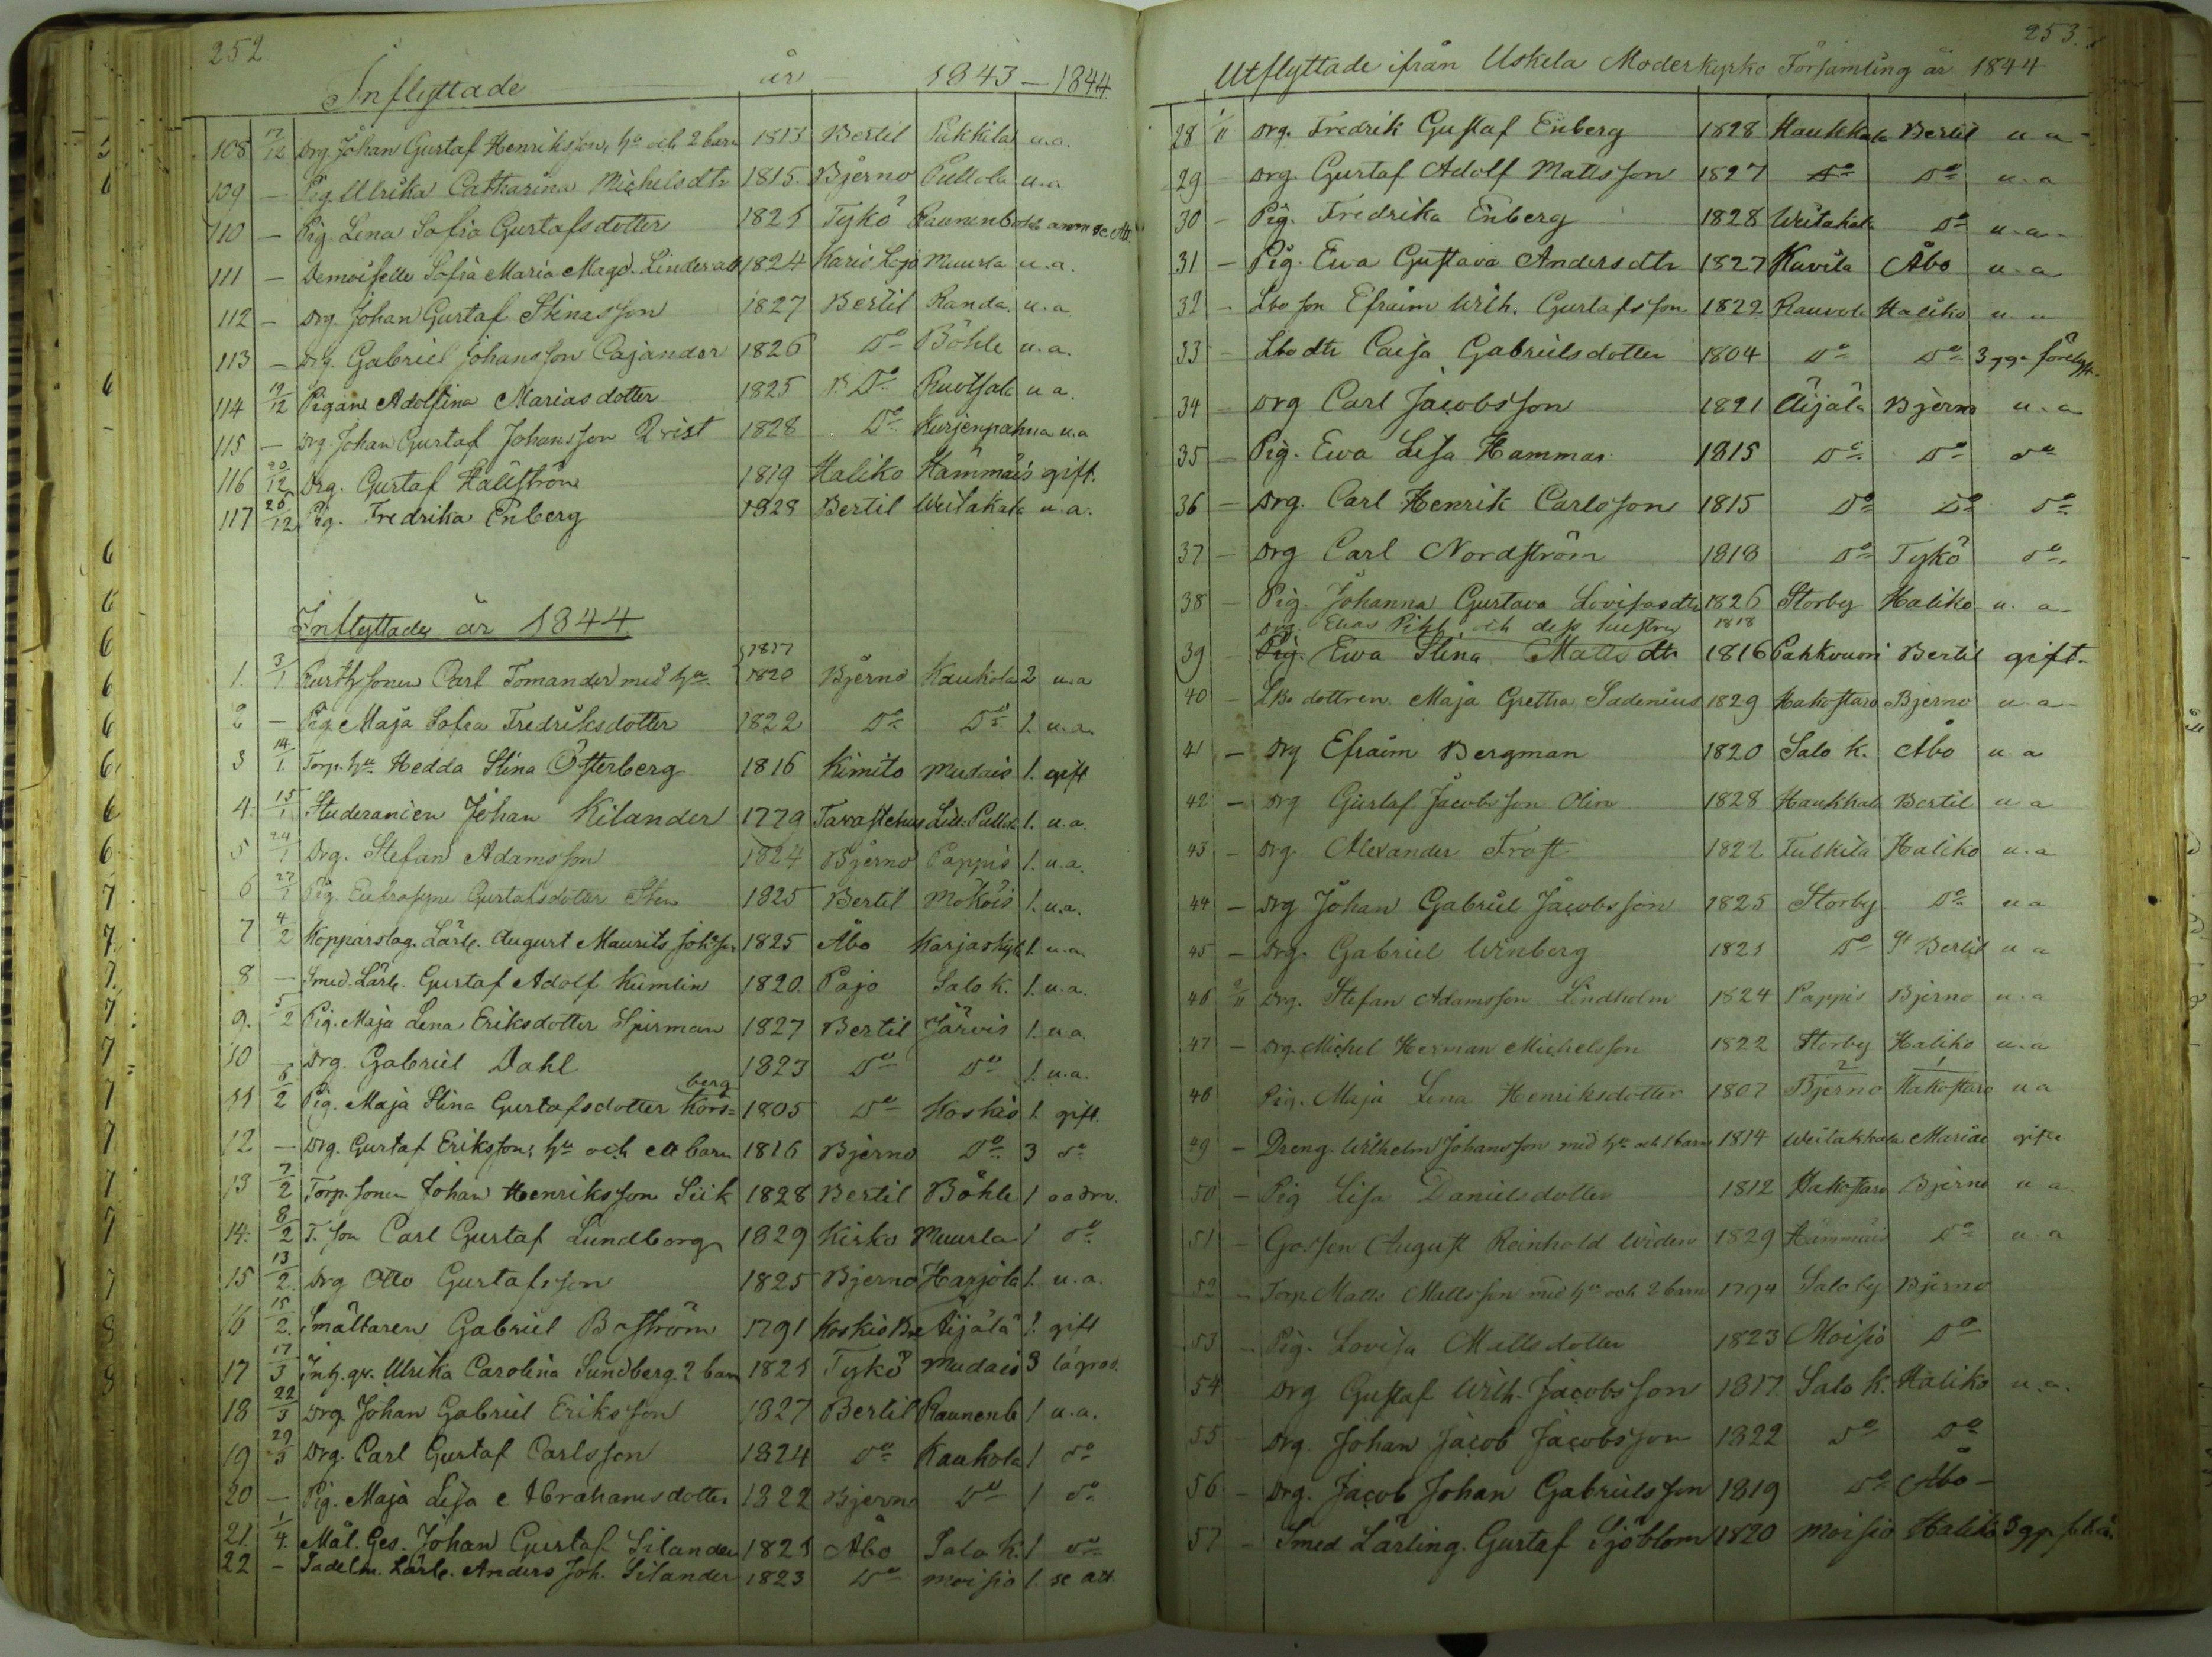 252.
Inflyttade år 1843 – 1844
108 17/12 Drg. Johan Gustaf Henriksson, hu och 2 barn 1813 Bertil Pukkila u.a.
109 – Pig. Ulrika Catharina Michelsdtr 1815. Bjerno Pullola u.a
110 – Pig. Lena Sofia Gustafsdotter 1825 Tykö Raunenb. anm se Att.
111 – Demoiselle Sofia Maria Magd. 1824 Karis Lojo Muurla u.a.
112 – Drg. Johan Gustaf Stinasson 1827 Bertil Randa. u.a
113 – Drg. Gabriel Johansson Cajander 1826 Do Böhle u.a.
114 19/12 Pigan Adolfina Mariasdotter 1825 Do Ruotsala u a.
115 – Drg. Johan Gustaf Johansson Qvist 1828 Do Kurjenpahna u.a
116 20/12 Drg. Gustaf Hällström 1819 Haliko Hämmäis gift.
117 28/12 Pig. Fredrika Enberg 1828 Bertil Weitakala u.a.
Inflyttade år 1844
1817
1. 3/1 Carl Tomander med hu. 1820 Bjerno Kaukola 2 u.a
2 – Pig. Maja Sofia Fredriksdotter 1822 Do Do 1. u.a.
3 14/1. Torp. hu Hedda Stina Österberg 1816 Kimito Mudais 1. gift
4. 15/1 Studeranden Johan Kilander 1779 Tavastehus Lill. Pullola 1. u.a.
5 24/1 Drg. Stefan Adamsson 1824 Bjerno Pappis 1. u.a.
6 27/1 Pig. Eufrosyne Gustafsdotter Sten 1825 Bertil Mökois 1. u.a.
7 4/2 Kopparslag. Lärl. August Maurits 1825 Åbo Karjaskylä 1. u.a.
8 – Smed. Lärl. Gustaf Adolf Kumlin 1820. Pojo Salo k. 1. u.a.
9. 5/2 Pig. Maja Lena Eriksdotter Spirman 1827 Bertil Järvis 1. u.a.
10 – Drg. Gabriel Dahl 1823 Do Do 1. u.a.
berg
11 6/2 Pig. Maja Stina Gustafsdotter Kors= 1805 Do Koskis 1. gift.
12 – Drg. Gustaf Eriksson, hu och ett barn 1816 Bjerno Do 3 do
13 7/2 Torp. Sonen Johan Henriksson Siik 1828 Bertil Böhle 1 oadm.
14. 8/2 T. Son Carl Gustaf Lundborg 1829 Kisko Muurla 1 do
15 13/2. Drg Otto Gustafsson 1825 Bjerno Harjola 1. u.a.
16 15/2. Smältaren Gabriel Boström 1791 Koskis Äijälä 1. gift
17 17/3 Inh. qv. Ulrika Carolina Sundberg. 2 barn 1825 Tykö Mudais 3 lägrad.
18 22/3 Drg. Johan Gabriel Eriksson 1827 Bertil Raunenb 1 u.a.
19 29/3 Drg. Carl Gustaf Carlsson 1824 Do Kaukola 1 do
20 – Pig. Maja Lisa Abrahamsdotter 1822 Bjerno Do 1 do
21. 1/4. Mål. Ges. Johan Gustaf Silander 1825 Åbo Salo k. 1 do
22 – Sadelm. Lärl. Anders Joh. Silander 1823 Do Moisio 1. se att.
253.
Utflyttade ifrån Uskela Moderkyrko Församling år 1844
28 1/11 Drg. Fredrik Gustaf Enberg 1828 Haukkala Bertil u a
29 Drg. Gustaf Adolf Mattsson 1827 Do Do u.a
30 – Pig. Fredrika Enberg 1828 Weitakala Do u.a.
31 – Pig. Ewa Gustava Andersdtr 1827 Kavila Åbo u a
32 – Lbo son Efraim Wilh. Gustafsson 1822 Rauvola Haliko u a
33 – Lbo dtr Caisa Gabrielsdotter 1804 Do Do 3 gg.
34 – Drg Carl Jacobsson 1821 Äijälä Bjerno u.a
35 – Pig. Ewa Lisa Hammar 1815 Do Do Do
36 – Drg. Carl Henrik Carlsson 1815 Do Do Do
37 – Drg Carl Nordström 1818 Do Tykö Do
38 – Pig. Johanna Gustava Lovisasdtr 1826 Storby Haliko u. a
Drg. Elias Pihl och dess hustru 1818
39 Pig. Ewa Stina Mattsdtr 1816 Pahkvuori Bertil gift
40 – Lbo dottren Maja Gretha Sadenius 1829 Hakostaro Bjerno u.a
41 – Drg Efraim Bergman 1820 Salo k. Åbo u a
42 – Drg Gustaf Jacobsson Olin 1828 Haukkala Bertil u a
43 – Drg. Alexander Frost 1822 Tulkila Haliko u.a
44 – Drg Johan Gabriel Jacobsson 1825 Storby Do u a
45 – Drg. Gabriel Winberg 1825 Do Bertil u a
46 2/11 Drg. Stefan Adamsson Lindholm 1824 Pappis Bjerno u.a
47 – Drg. Michel Herman Michelsson 1822 Storby Haliko u.a
2 1
48 Pig. Maja Lena Henriksdotter 1807 Bjerno Hakostaro u a
49 – Dreng. Wilhelm Johansson med hu och 1 barn 1814 Weitakkala Mariae gifte
50 – Pig Lisa Danielsdotter 1812 Hakostaro Bjerno u a
51 – Gossen August Reinhold Widen 1829 Hämmäis Do u.a
52 – Torp. Matts Mattsson med hu och 2 barn 1794 Salo by Bjerno
53 – Pig. Lovisa Mattsdotter 1823 Moisio Do
54 – Drg Gustaf Wilh. Jacobsson 1817 Salo k. Haliko u.a.
55 – Drg. Johan Jacob Jacobsson 1822 Do Do
56 – Drg. Jacob Johan Gabrielsson 1819 Do Åbo –
57 – Smed Lärling. Gustaf Sjöblom 1820 Moisio Haliko 3 gg.